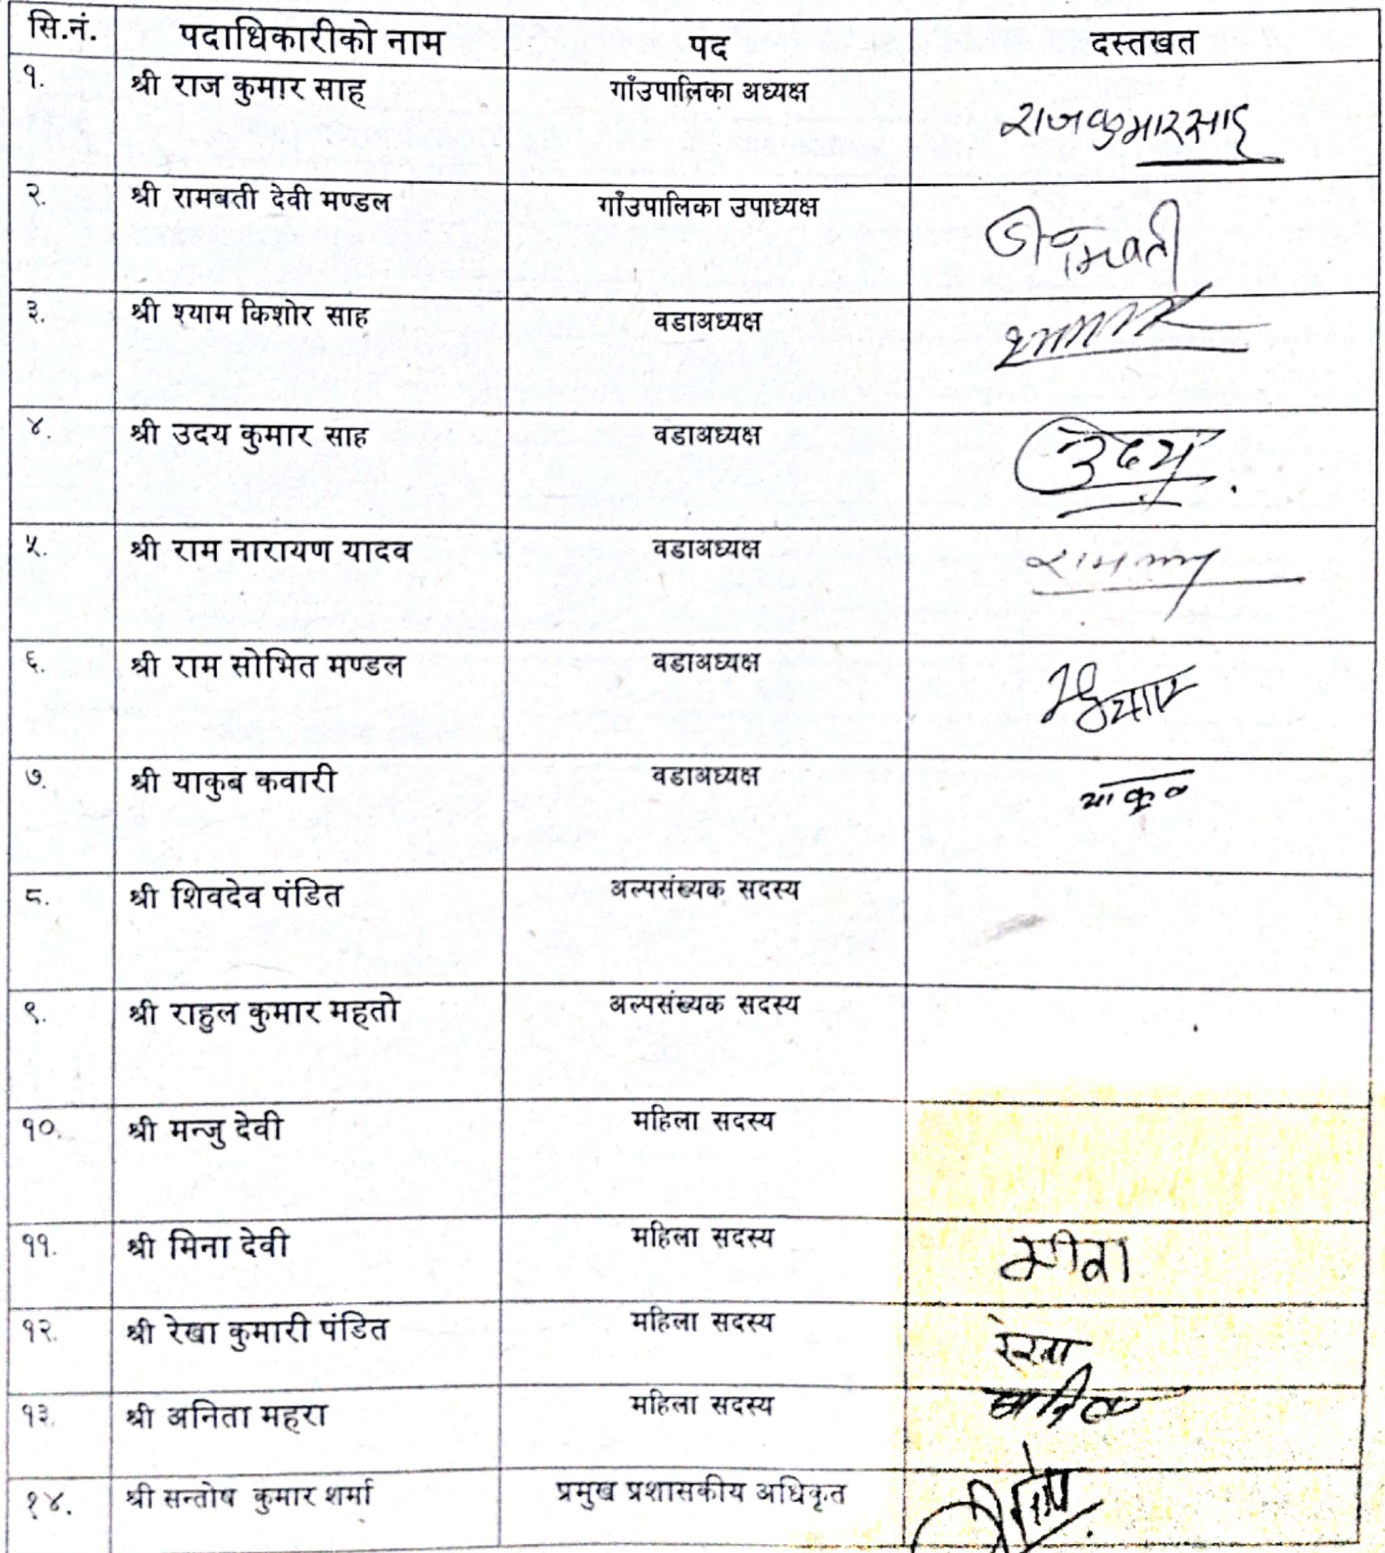 सि.नं. पदाधिकारीको नाम पद दस्तखत
१. श्री राज कुमार साह गाँउपालिका अध्यक्ष राजकुमार साह
२. श्री रामबती देवी मण्डल गाँउपालिका उपाध्यक्ष
३. श्री श्याम किशोर साह वडाअध्यक्ष
४. श्री उदय कुमार साह वडाअध्यक्ष उदय
५. श्री राम नारायण यादव वडाअध्यक्ष
६. श्री राम सोभित मण्डल वडाअध्यक्ष
७. श्री याकुब कवारी वडाअध्यक्ष याकुब
८. श्री शिवदेव पंडित अल्पसंख्यक सदस्य
९. श्री राहुल कुमार महतो अल्पसंख्यक सदस्य
१०. श्री मन्जु देवी महिला सदस्य
११. श्री मिना देवी महिला सदस्य मीना
१२. श्री रेखा कुमारी पंडित महिला सदस्य रेखा
१३. श्री अनिता महरा महिला सदस्य
१४. श्री सन्तोष कुमार शर्मा प्रमुख प्रशासकीय अधिकृत